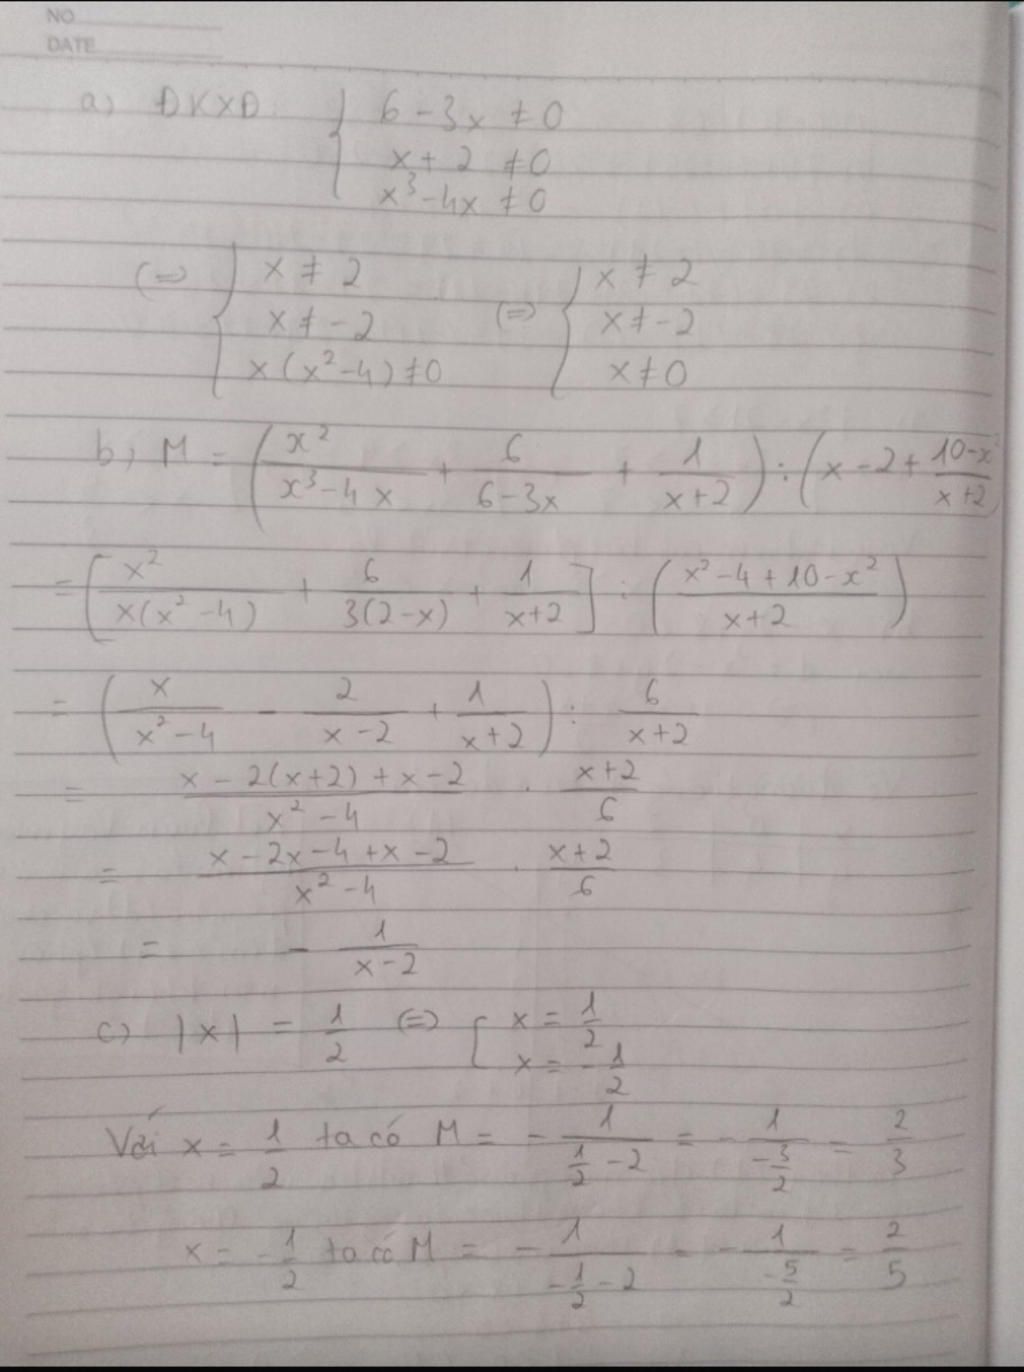 NO
DATE
a) ĐKXĐ { 6 - 3x ≠ 0
x + 2 ≠ 0
x³ - 4x ≠ 0
(=) { x ≠ 2 (=) { x ≠ 2
x ≠ -2 x ≠ -2
x(x² - 4) ≠ 0 x ≠ 0
b, M = (x²/(x³ - 4x) + 6/(6 - 3x) + 1/(x + 2)) : (x - 2 + (10 - x²)/(x + 2))
= [x²/(x(x² - 4)) + 6/(3(2 - x)) + 1/(x + 2)] : ((x² - 4 + 10 - x²)/(x + 2))
= (x/(x² - 4) - 2/(x - 2) + 1/(x + 2)) : 6/(x + 2)
= (x - 2(x + 2) + x - 2)/(x² - 4) . (x + 2)/6
= (x - 2x - 4 + x - 2)/(x² - 4) . (x + 2)/6
= - 1/(x - 2)
c) |x| = 1/2 (=) [ x = 1/2
x = -1/2
Với x = 1/2 ta có M = - 1/(1/2 - 2) = - 1/(-3/2) = 2/3
x = -1/2 ta có M = - 1/(-1/2 - 2) = - 1/(-5/2) = 2/5